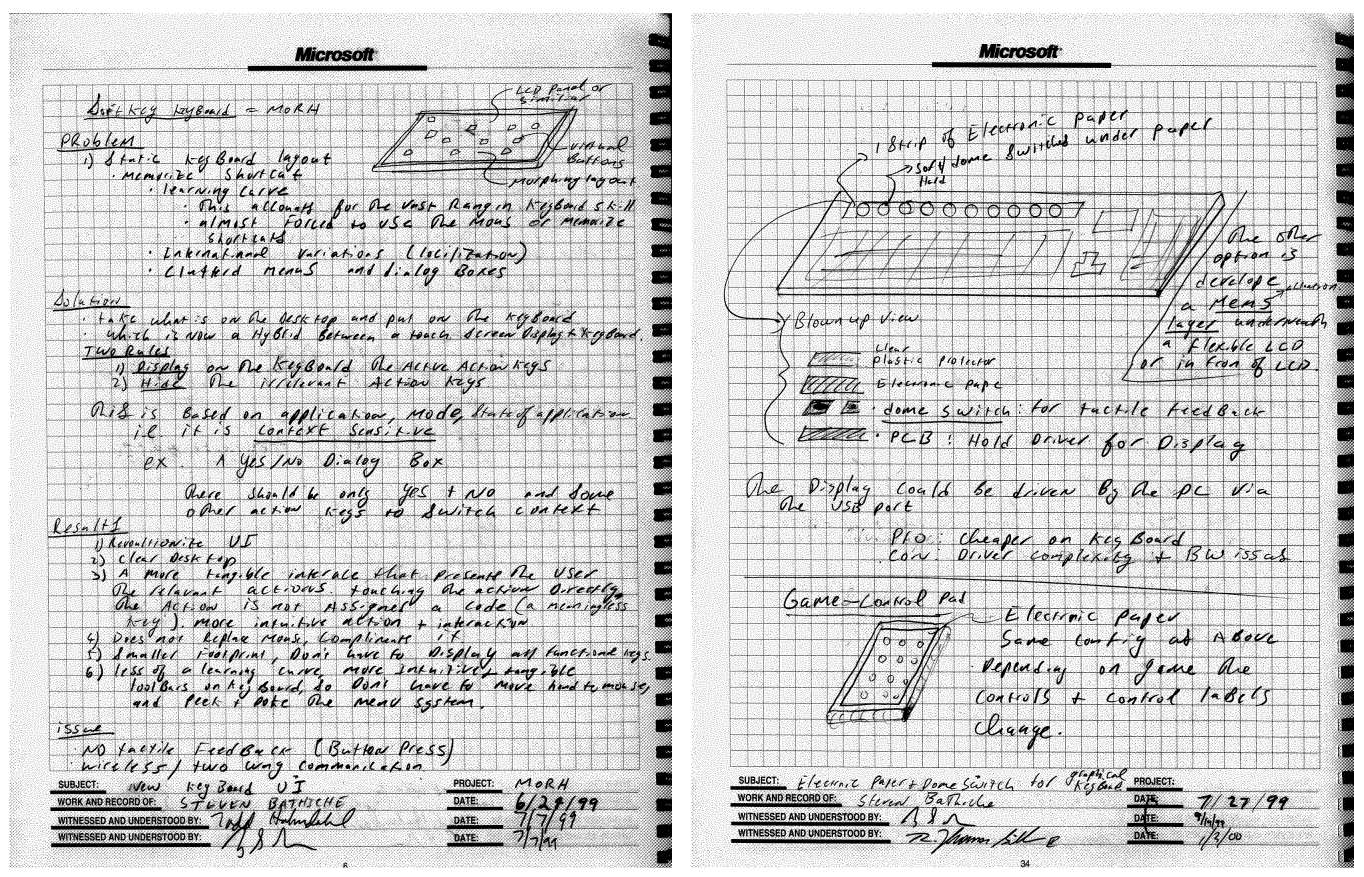 Microsoft
Soft Key KeyBoard = MORH
LCD Panel or
Similiar
virtual
Buttons
Morphing layout
PROBlem
1) Static KeyBoard layout
· Memorize Shortcut
· learning curve
· This allounts for the vast Rang in KeyBoard Skill
· almost Forced to use the Mous or memorize
Shortcuts
· International Variations (locilization)
· Clutterd menus and dialog Boxes
Solution
· take what is on the Desktop and put on the KeyBoard
· which is now a HyBrid Between a touch Screen Display + KeyBoard.
Two Rules
1) Display on the KeyBoard the Active Action Keys
2) Hide the irrelevant Action Keys
This is Based on application, Mode, State of application
i.e. it is Context Sensitive
ex. A Yes/No Dialog Box
There should be only Yes + No and Some
other action Keys to Switch context
Results
1) Revoultionize UI
2) Clear Desktop
3) A more tangible interace that presents the User
the relevant actions. touching the action Directly,
the Action is not Assigned a Code (a meaningless
key). more intuitive action + interaction
4) Does not Replace Mouse, Compliments it
5) Smaller Footprint, Don't have to Display all functional Keys.
6) less of a learning curve, more Intuitive, tangible
toolBars on KeyBoard, So Don't have to move hand to mouse,
and Peek + Poke the menu system.
issue
· NO tactile FeedBack (Button Press)
· wireless / two way communication
SUBJECT: New KeyBoard UI
PROJECT: MORH
WORK AND RECORD OF: STEVEN BATHICHE
DATE: 6/29/99
WITNESSED AND UNDERSTOOD BY:
DATE: 7/7/99
WITNESSED AND UNDERSTOOD BY:
DATE: 7/7/99
6
Microsoft
1 Strip of Electronic Paper
Soft dome Switched under paper
Hard
The other
option is
develope
a Mems
layer underneath
a flexible LCD
or in fron of LCD.
Blown up View
Clear
Plastic Protector
Electronic Pape
· dome Switch: for tactile FeedBack
· PCB: Hold Driver for Display
The Display Could Be driven By the PC via
the USB port
PRO: Cheaper on KeyBoard
CON: Driver complexity + BW issues
Game-Control Pad
Electronic paper
Same config as ABove
Depending on game the
controls + control labels
Change.
SUBJECT: Electronic Paper + Dome Switch for graphical KeyBoard
PROJECT:
WORK AND RECORD OF: Steven Bathiche
DATE: 7/27/99
WITNESSED AND UNDERSTOOD BY:
DATE:
WITNESSED AND UNDERSTOOD BY:
DATE:
34